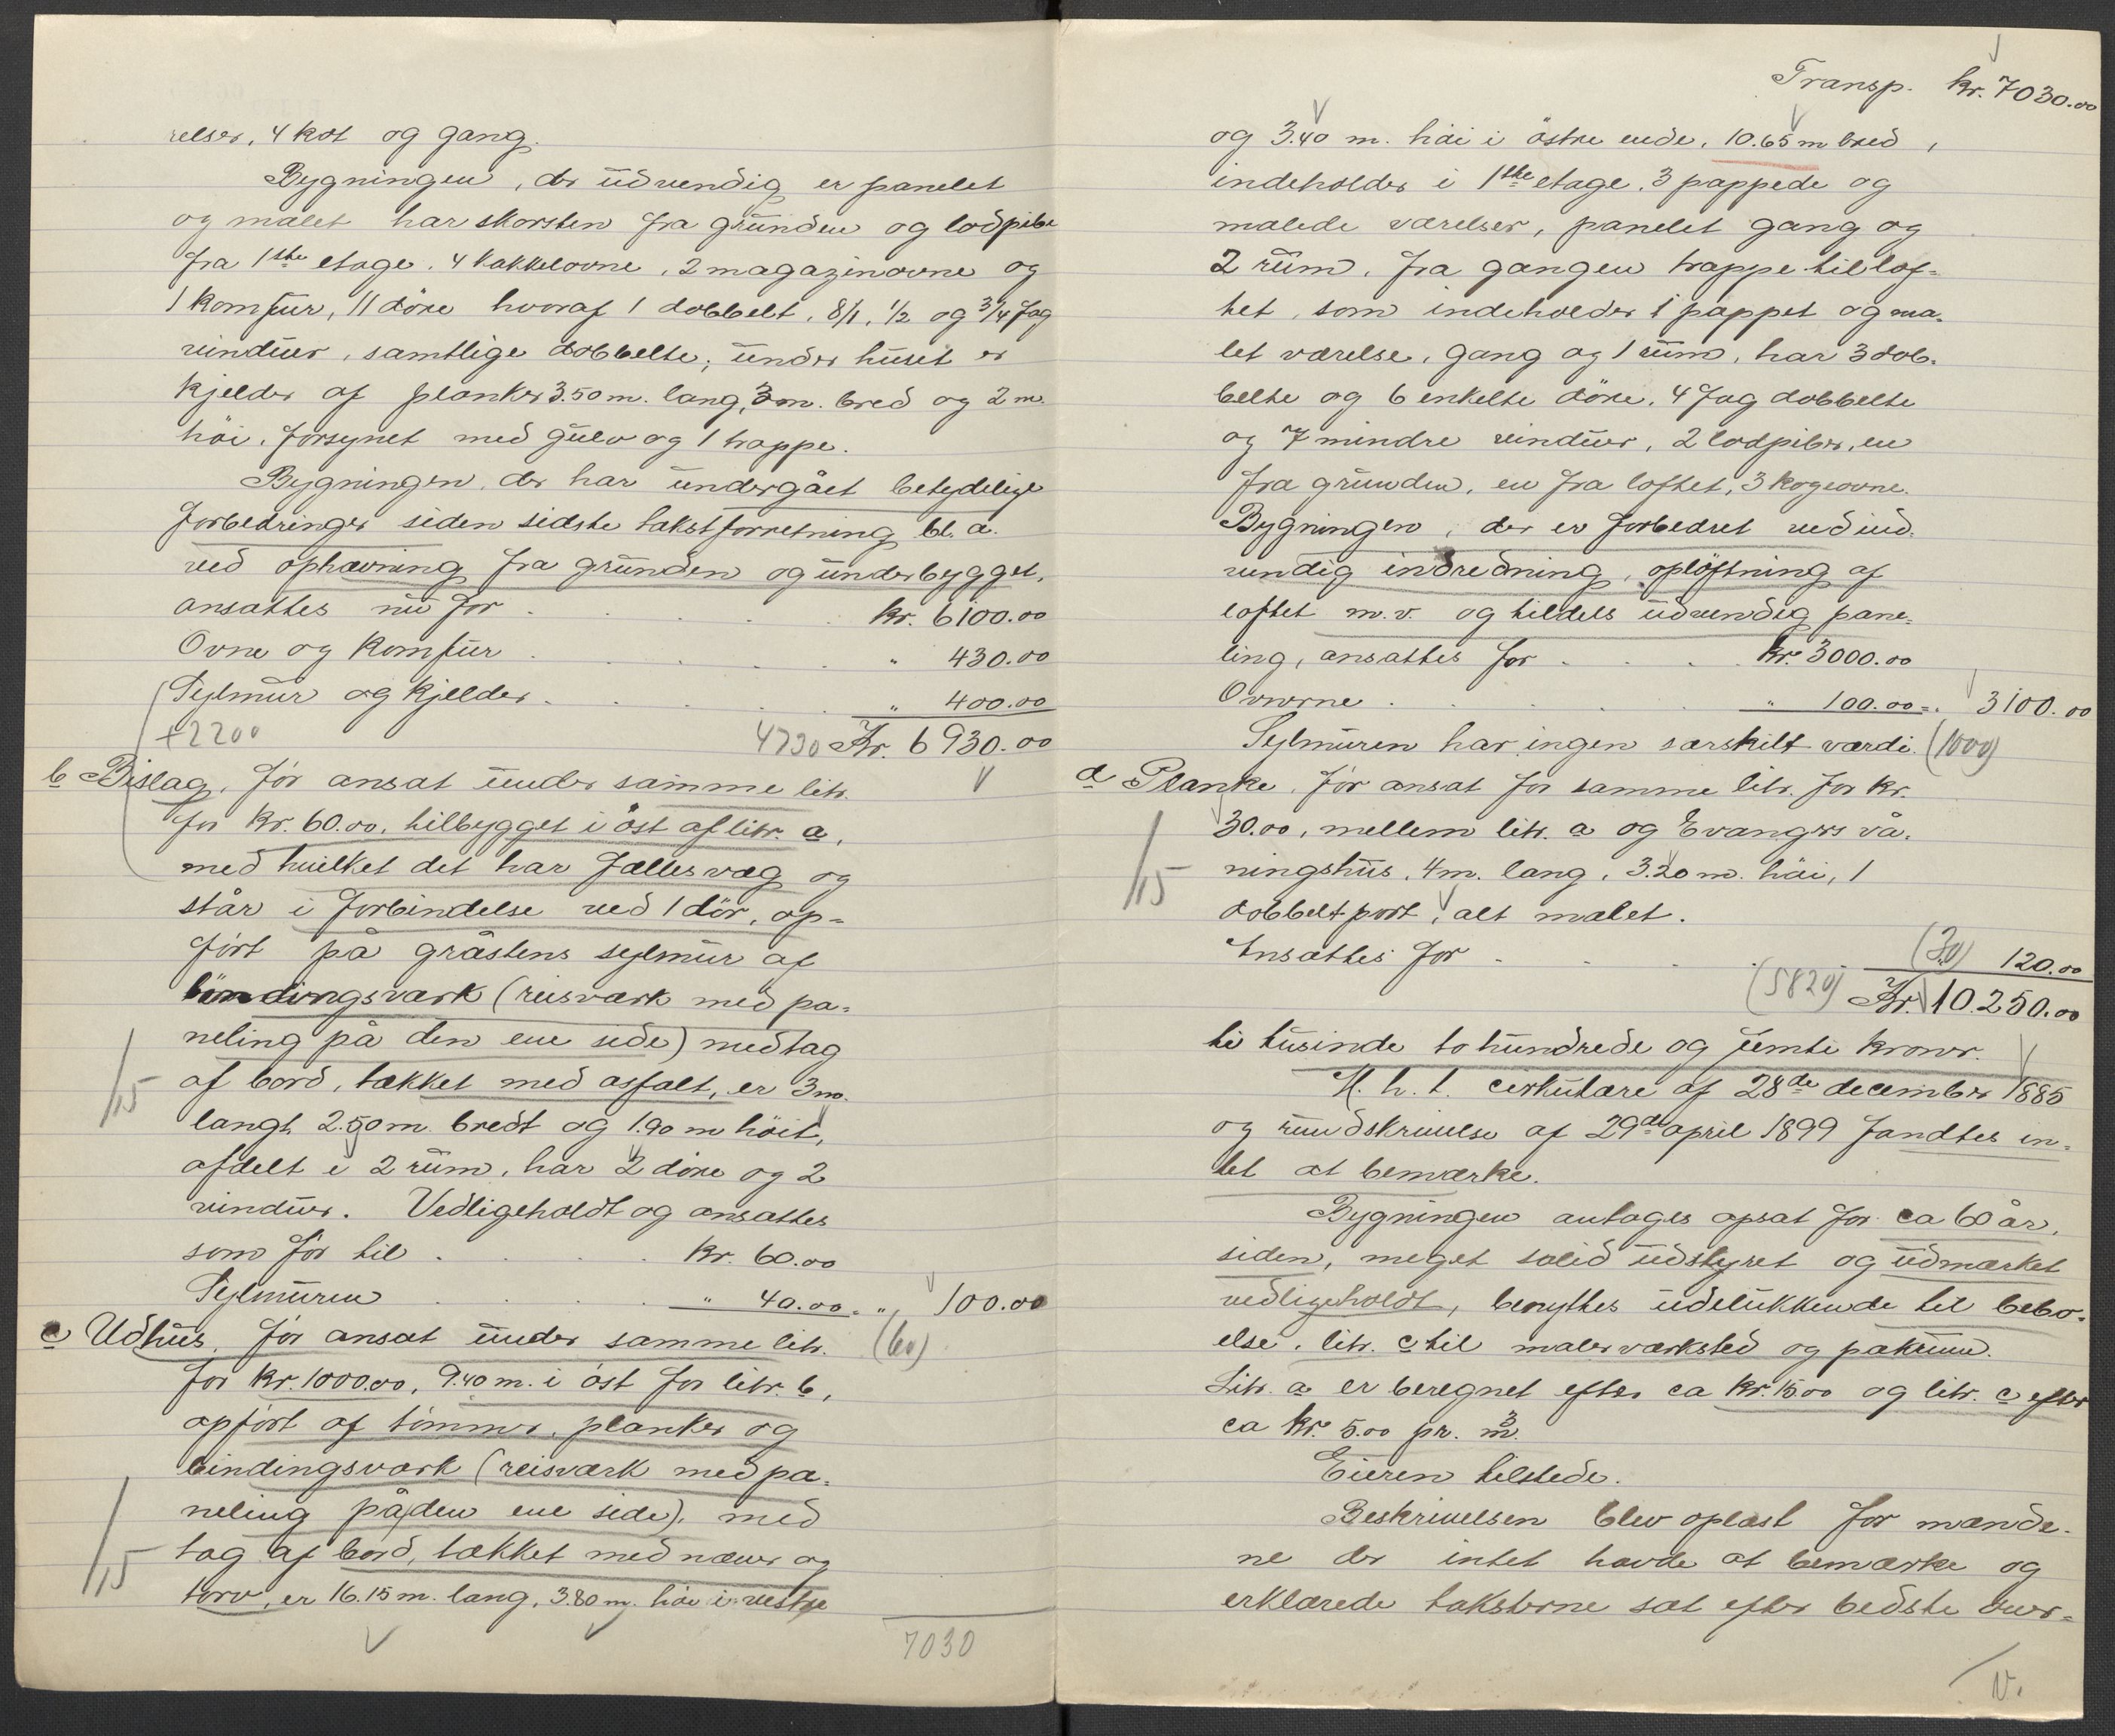 relser, 4 kot og gang.
Bygningen, der udvendig er panelet
og malet har skorsten fra grunden og lodpibe
fra 1ste etage. 4 kakkelovne, 2 magazinovne og
1 komfur, 11 döre hvoraf 1 dobbelt, 8/1, 1/2 og 3/4 fag
vinduer, samtlige dobbelte; under huset er
kjelder af planker 3.50 m. lang, 3 m. bred og 2 m.
höi, forsynet med gulv og 1 trappe.
Bygningen, der har undergået betydelige
forbedringer siden sidste takstforretning bl. a.
ved ophævning fra grunden og underbygget,
ansattes nu for . . . . kr. 6100.00
Ovne og komfur . . . . . " 430.00
Sylmur og kjelder . . . . . " 400.00
+2200 4730 Kr. 6930.00
b Bislag, för ansat under samme litr.
for kr. 60.00, tilbygget i öst af litr. a,
med hvilket det har fælles væg og
står i forbindelse ved 1 dör, op=
fört på gråstens sylmur af
bindingsværk (reisværk med pa=
neling på den ene side) med tag
af bord, tækket med asfalt, er 3 m.
15
langt, 2.50 m. bredt og 1.90 m höit,
afdelt i 2 rum, har 2 döre og 2
vinduer. Vedligeholdt og ansattes
som för til . . . . kr. 60.00
Sylmuren . . . . " 40.00 = " 100.00
c Udhus, för ansat under samme litr. (60)
for kr. 1000.00, 9.40 m. i öst for litr. b,
opfört af tömmer, planker og
bindingsværk (reisværk med pa=
neling på den ene side), med
tag af bord, tækket med næver og
15
torv, er 16.15 m. lang, 3.80 m. höi i vestre
7030
Transp. kr. 7030.00
og 3.40 m. höi i östre ende, 10.65 m bred,
indeholder i 1ste etage 3 pappede og
malede værelser, panelet gang og
2 rum, fra gangen trappe til lof=
tet, som indeholder 1 pappet og ma=
let værelse, gang og 1 rum, har 3 dob=
belte og 6 enkelte döre, 4 fag dobbelte
og 7 mindre vinduer, 2 lodpiber, en
fra grunden, en fra loftet, 3 kogeovne.
Bygningen, der er forbedret ved ind=
vendig indredning, oplöftning af
loftet m.v. og tildels udvendig pane=
ling, ansattes for . . . kr. 3000.00
Ovnene . . . . . " 100.00 = " 3100.00
Sylmuren har ingen særskilt værdi. (1000)
d Planke, för ansat for samme litr. for kr.
30.00, mellem litr. a og Evangers vå=
15
ningshus, 4 m. lang, 3.20 m. höi, 1
dobbelt port, alt malet.
Ansattes for . . . . (30) 120.00
(5820) Kr. 10.250.00
ti tusinde to hundrede og femti kroner.
M. h. t. cirkulære af 28de december 1885
og rundskrivelse af 29de april 1899 fandtes in=
tet at bemærke.
Bygningen antages opsat for ca 60 år
siden, meget solid udstyret og udmærket
vedligeholdt, benyttes udelukkende til bebo=
else, litr. c til malerværksted og pakrum.
Litr. a er beregnet efter ca kr. 15.00 og litr. c efter
ca kr. 5.00 pr. m3.
Eieren tilstede.
Beskrivelsen blev oplæst for mænde=
ne der intet havde at bemærke og
erklærede taksterne sat efter bedste över=
V.